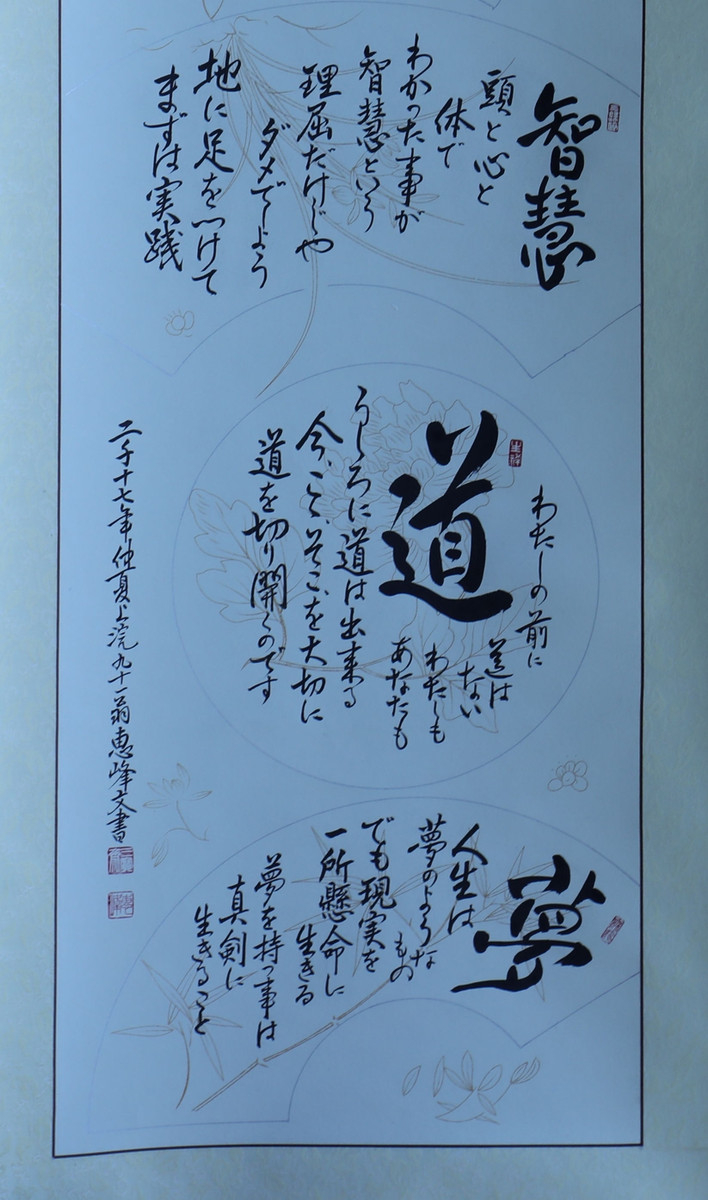 智慧
頭と心と
体で
わかった事が
智慧という
理屈だけじゃ
ダメでしょう
地に足をつけて
まずは実践
わたしの前に
道は
ない
道
わたしも
あなたも
うしろに道は出来る
今、ここ、そこ、を大切に
道を切り開くのです
夢
人生は
夢のような
もの
でも現実を
一所懸命に
生きる
夢を持つ事は
真剣に
生きること
二千十七年仲夏上浣九十一翁恵峰文書